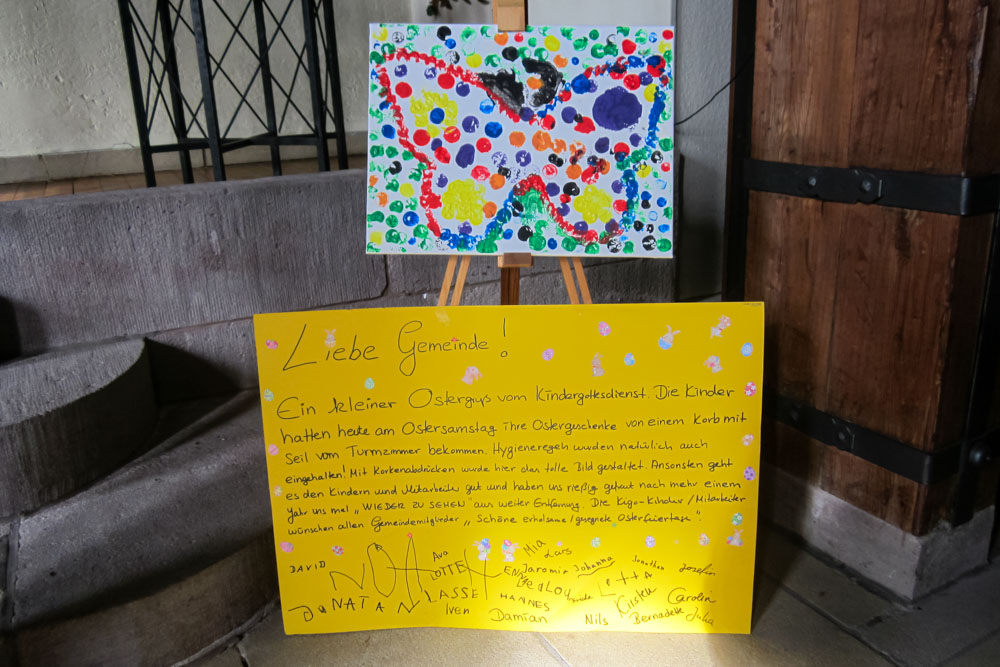 Liebe Gemeinde!
Ein kleiner Ostergruß vom Kindergottesdienst. Die Kinder
hatten heute am Ostersamstag ihre Ostergeschenke von einem Korb mit
Seil vom Turmzimmer bekommen. Hygieneregeln wurden natürlich auch
eingehalten! Mit Korkenabdrücken wurde hier das tolle Bild gestaltet. Ansonsten geht
es den Kindern und Mitarbeiter gut und haben uns rießig gefreut nach mehr einem
Jahr uns mal "WIEDER ZU SEHEN" aus weiter Entfernung. Die Kigo-Kinder/Mitarbeiter
wünschen allen Gemeindemitglieder "Schöne erholsame/gesegnete Osterfeiertage".
DAVID
NOAH
Ava
LOTTE
Mia
Lars
Jaromir
Johanna
Jonathan
Josefin
JONATAN
LASSE
Iven
HANNES
Damian
Lotta
Nils
Kirsten
Carolin
Bernadette
Julia